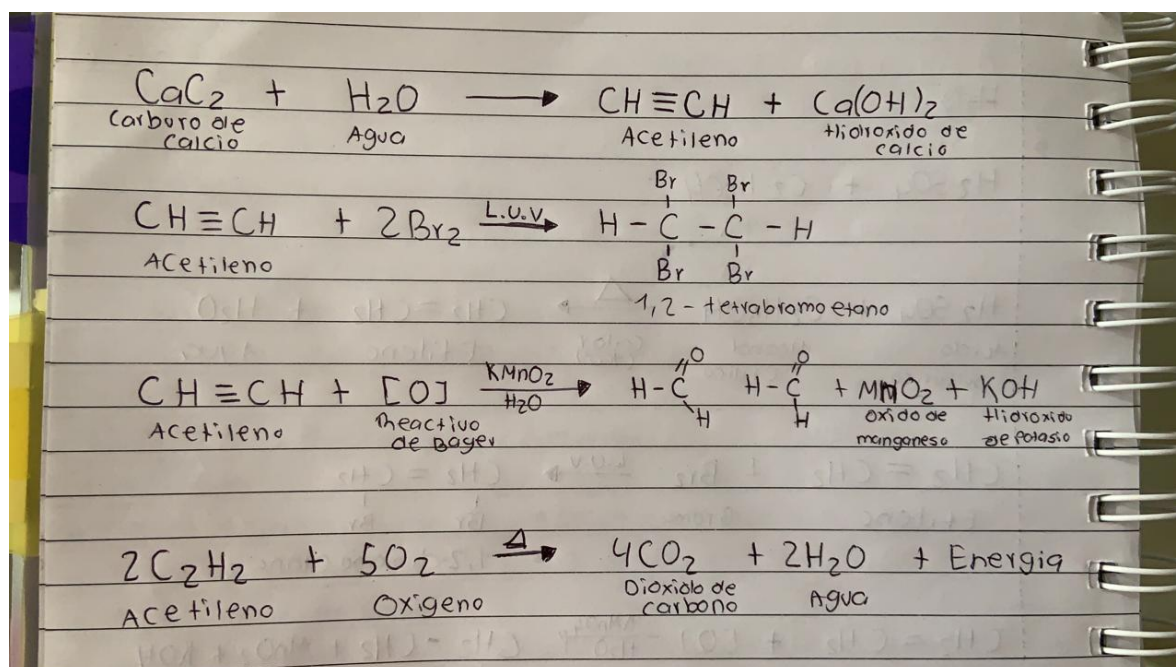 CaC₂ + H₂O ⟶ CH≡CH + Ca(OH)₂
Carburo de calcio Agua Acetileno Hidroxido de calcio
CH≡CH + 2Br₂ L.U.V ⟶ H-C-C-H
Br Br
Br Br
Acetileno
1,2-tetrabromoetano
CH≡CH + [O] KMnO₂ H₂O ⟶ H-C=O H H-C=O H + MnO₂ + KOH
Acetileno Reactivo de Bayer oxido de manganeso Hidroxido de Potasio
2C₂H₂ + 5O₂ Δ ⟶ 4CO₂ + 2H₂O + Energia
Acetileno Oxigeno Dioxido de carbono Agua